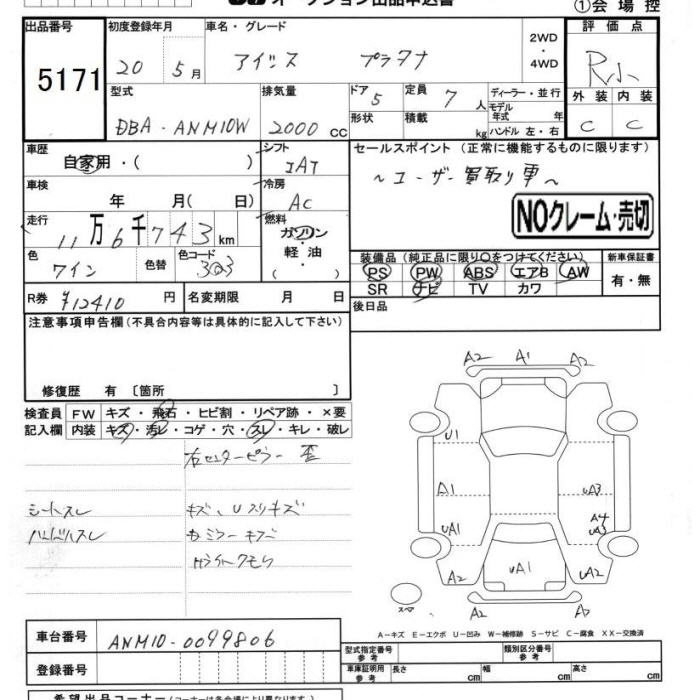 オークション出品申込書
①会場控
出品番号 初度登録年月 車名・グレード 2WD・4WD 評価点
5171 20年 5月 アイシス プラタナ R小
型式 排気量 ドア 5 定員 7人 ディーラー・並行 外装 内装
DBA-ANM10W 2000cc 形状 積載 kg モデル年式 年 ハンドル 左・右 C C
車歴 自家用・( ) シフト IAT セールスポイント (正常に機能するものに限ります)
車検 年 月( 日) 冷房 AC ~ユーザー買取り車~
NOクレーム・売切
走行 11万6千743km 燃料 ガソリン・軽油・( )
色 ワイン 色替 色コード 3Q3
装備品 (純正品に限り○をつけてください) 新車保証書
PS PW ABS エアB AW 有・無
SR ナビ TV カワ
R券 ¥12410円 名変期限 月 日 後日品
注意事項申告欄 (不具合内容等は具体的に記入して下さい)
修復歴 有 〔箇所 〕
検査員 FW キズ・飛石・ヒビ割・リペア跡・×要
記入欄 内装 キズ・汚レ・コゲ・穴・スレ・キレ・破レ
右センターピラー 歪
シートスレ キズ、Uスリキズ
ハンドルスレ カミラーキズ
ヘッドライトクモリ
A2 A1 A2
U1
A1 uA3
A4
uA1 uA3
A2 uA1 A2
スペア
A2 A2
A-キズ E-エクボ U-凹み W-補修跡 S-サビ C-腐食 XX-交換済
車台番号 ANM10-0099806
型式指定番号 参考 類別区分番号 参考
登録番号 車庫証明用 参考 長さ cm 幅 cm 高さ cm
希望出品コーナー(コーナーは各会場により異なります)